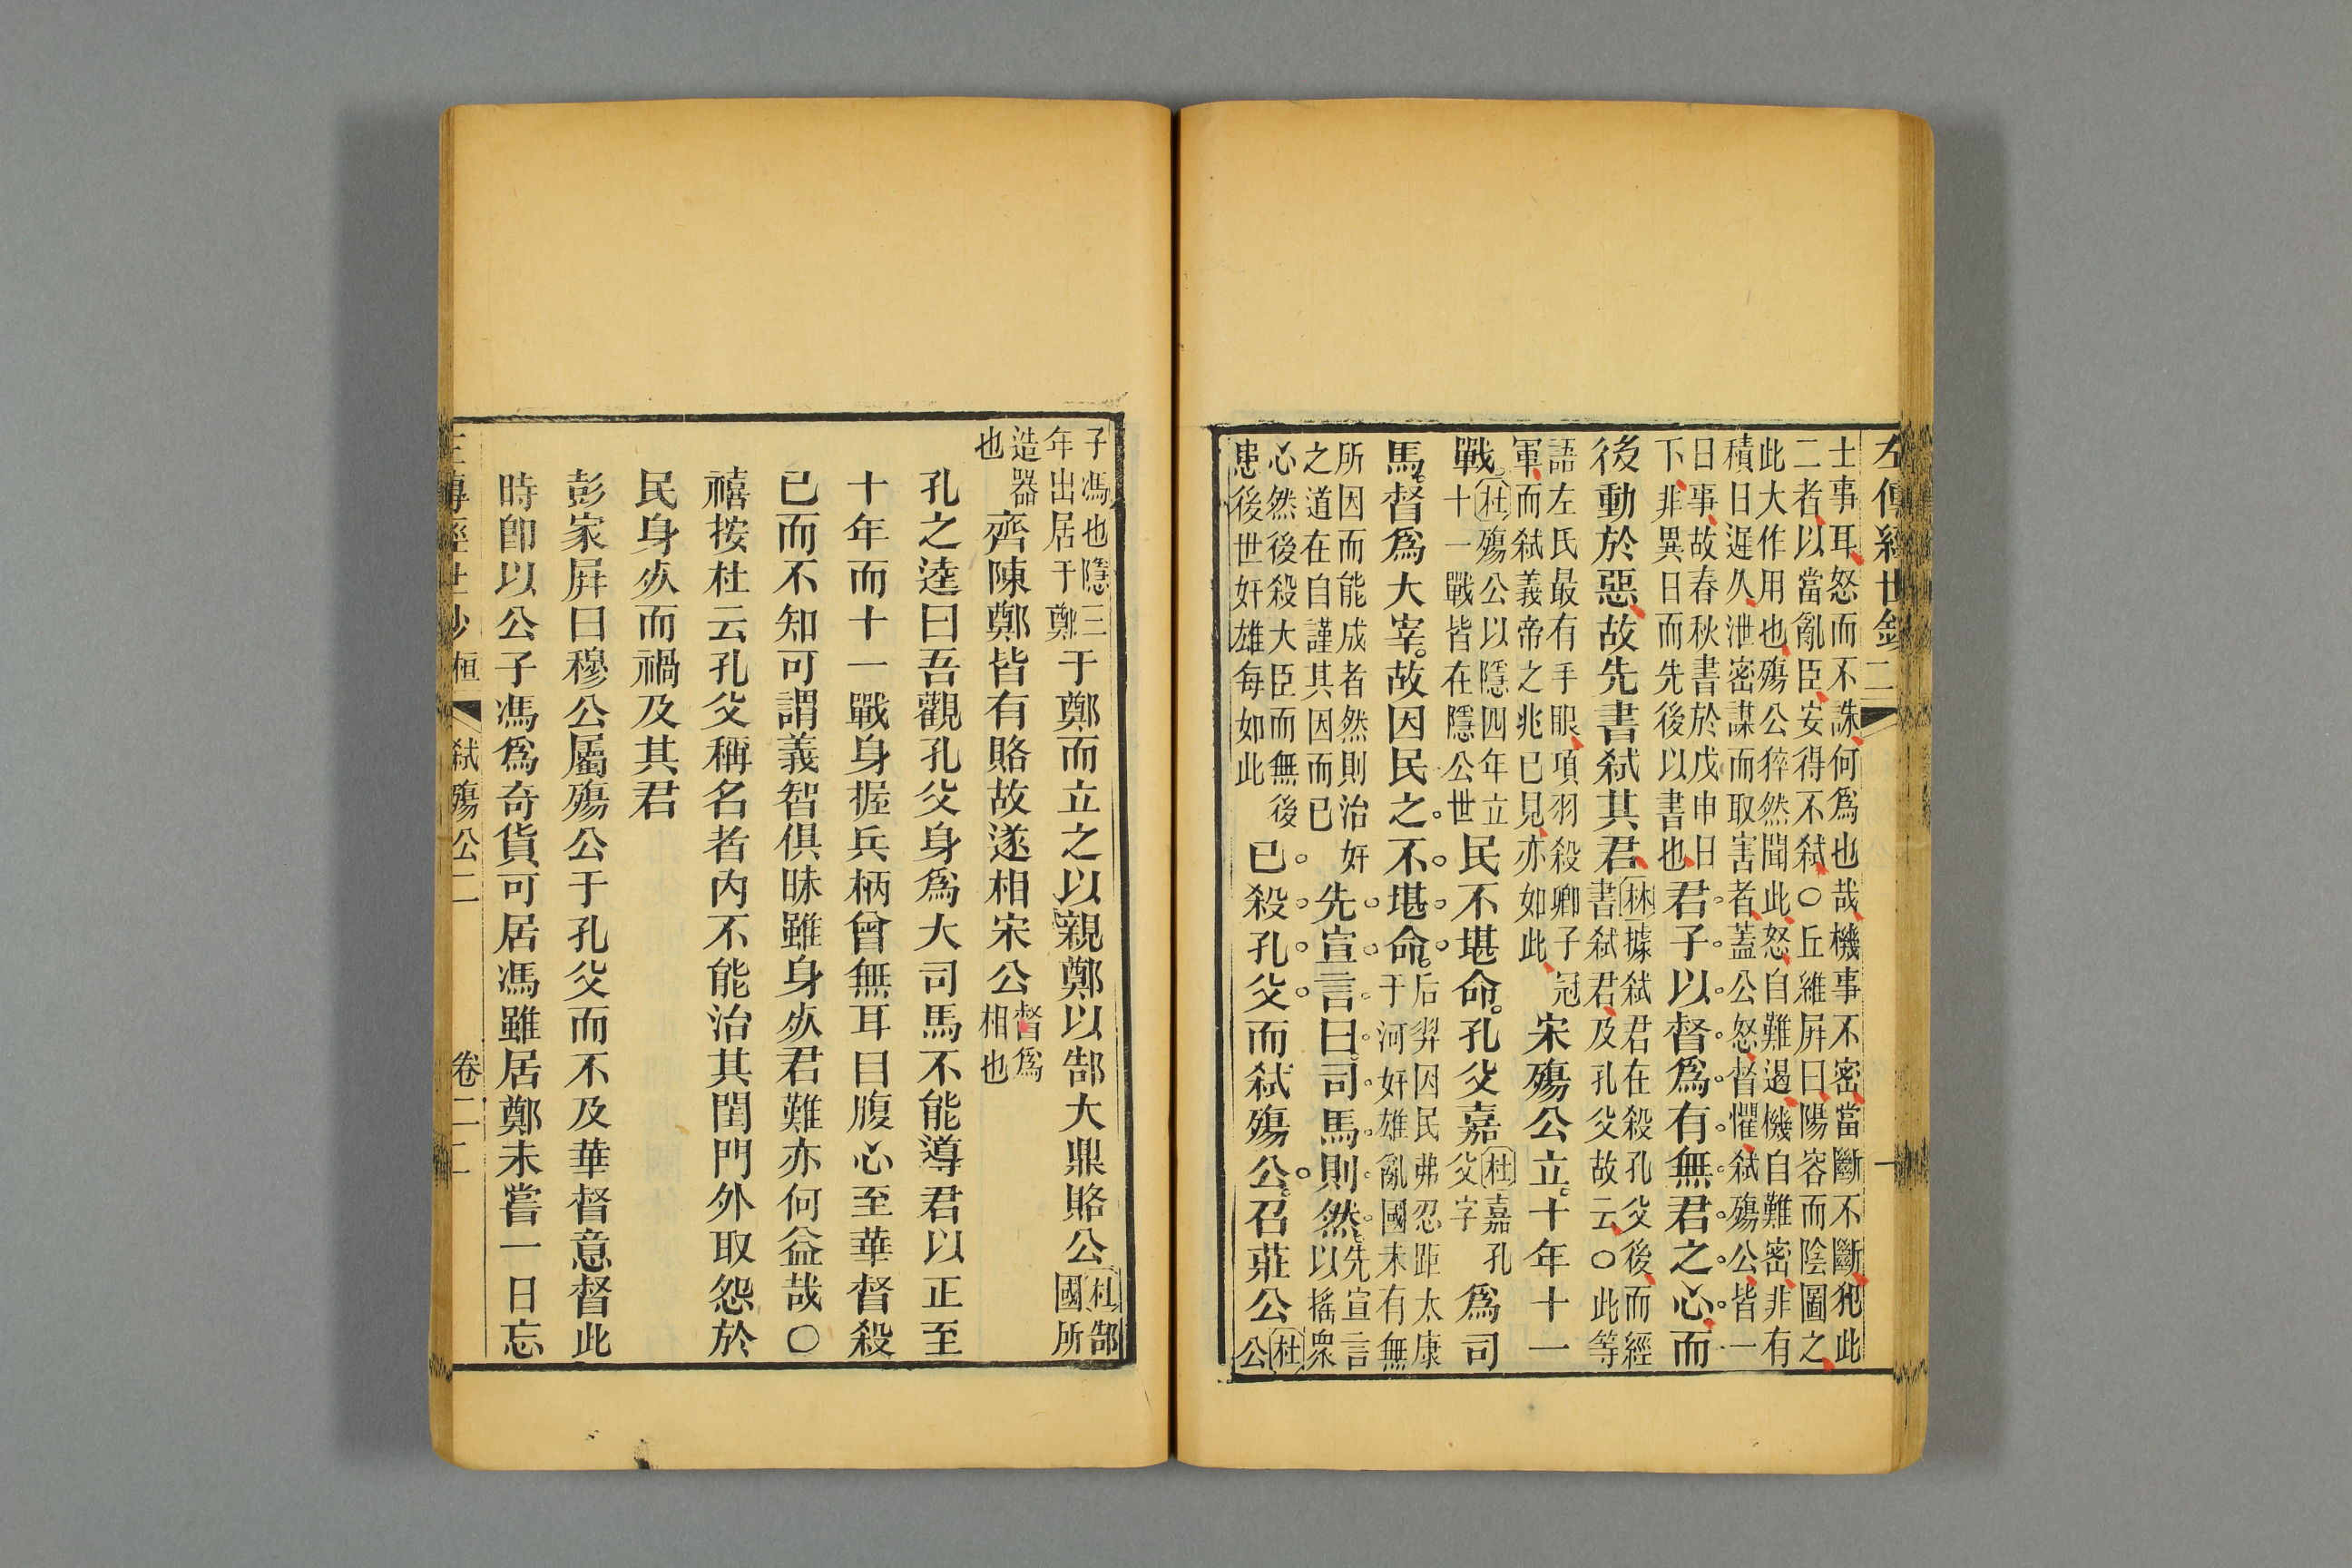 左傳經世鈔 二 一
士事耳怒而不誅何爲也哉機事不密當斷不斷犯此
二者以當亂臣安得不弑○丘維屏曰陽容而陰圖之
此大作用也殤公猝然聞此怒自難遏機自難密非有
積日遲久泄密謀而取害者蓋公怒督懼弑殤公皆一
日事故春秋書於戊申日
下非異日而先後以書也
君子以督爲有無君之心而
後動於惡故先書弑其君
林據弑君在殺孔父後而經
書弑君及孔父故云○此等
語左氏最有手眼項羽殺卿子冠
軍而弑義帝之兆已見亦如此
宋殤公立十年十一
戰
杜殤公以隱四年立
十一戰皆在隱公世
民不堪命孔父嘉
杜嘉孔
父字
爲司
馬督爲大宰故因民之不堪命
后羿因民弗忍距太康
于河奸雄亂國未有無
所因而能成者然則治奸
之道在自謹其因而已
先宣言曰司馬則然
先宣言
以搖衆
心然後殺大臣而無後
患後世奸雄每如此
已殺孔父而弑殤公召莊公
杜
公
子馮也隱三
年出居于鄭
于鄭而立之以親鄭以郜大鼎賂公
杜郜
國所
造器
也
齊陳鄭皆有賂故遂相宋公
督爲
相也
孔之逵曰吾觀孔父身爲大司馬不能導君以正至
十年而十一戰身握兵柄曾無耳目腹心至華督殺
已而不知可謂義智俱昧雖身死君難亦何益哉○
禧按杜云孔父稱名者內不能治其閨門外取怨於
民身死而禍及其君
彭家屏曰穆公屬殤公于孔父而不及華督意督此
時卽以公子馮爲奇貨可居馮雖居鄭未嘗一日忘
左傳經世鈔 桓 弑殤公二 卷二 二